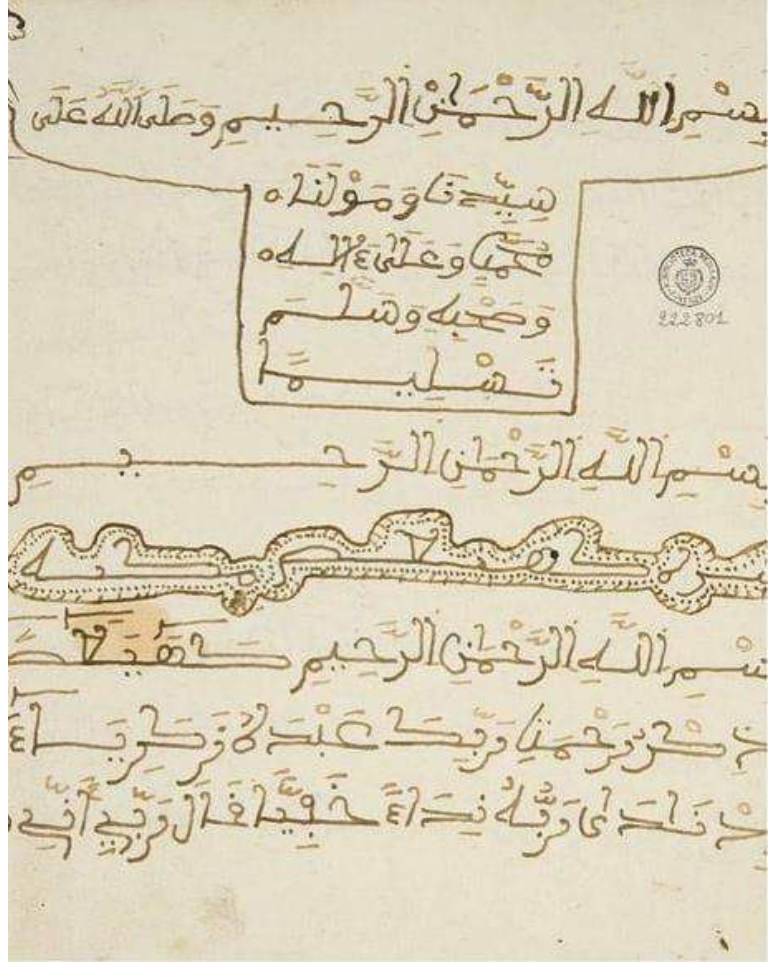 بِسْمِ اللَّهِ الرَّحْمَٰنِ الرَّحِيمِ وَصَلَّى اللَّهُ عَلَى
سَيِّدِنَا وَمَوْلَنَا
مُحَمَّدٍ وَعَلَىٰ ءَالِهِ
وَصَحْبِهِ وَسَلَّمَ
تَسْلِيمًا
222801
بِسْمِ اللَّهِ الرَّحْمَٰنِ الرَّحِيمِ
بِسْمِ اللَّهِ الرَّحْمَٰنِ الرَّحِيمِ كَهيعص
ذِكْرُ رَحْمَتِ رَبِّكَ عَبْدَهُ زَكَرِيَّاءَ
إِذْ نَادَىٰ رَبَّهُ نِدَاءً خَفِيًّا قَالَ رَبِّ إِنِّي